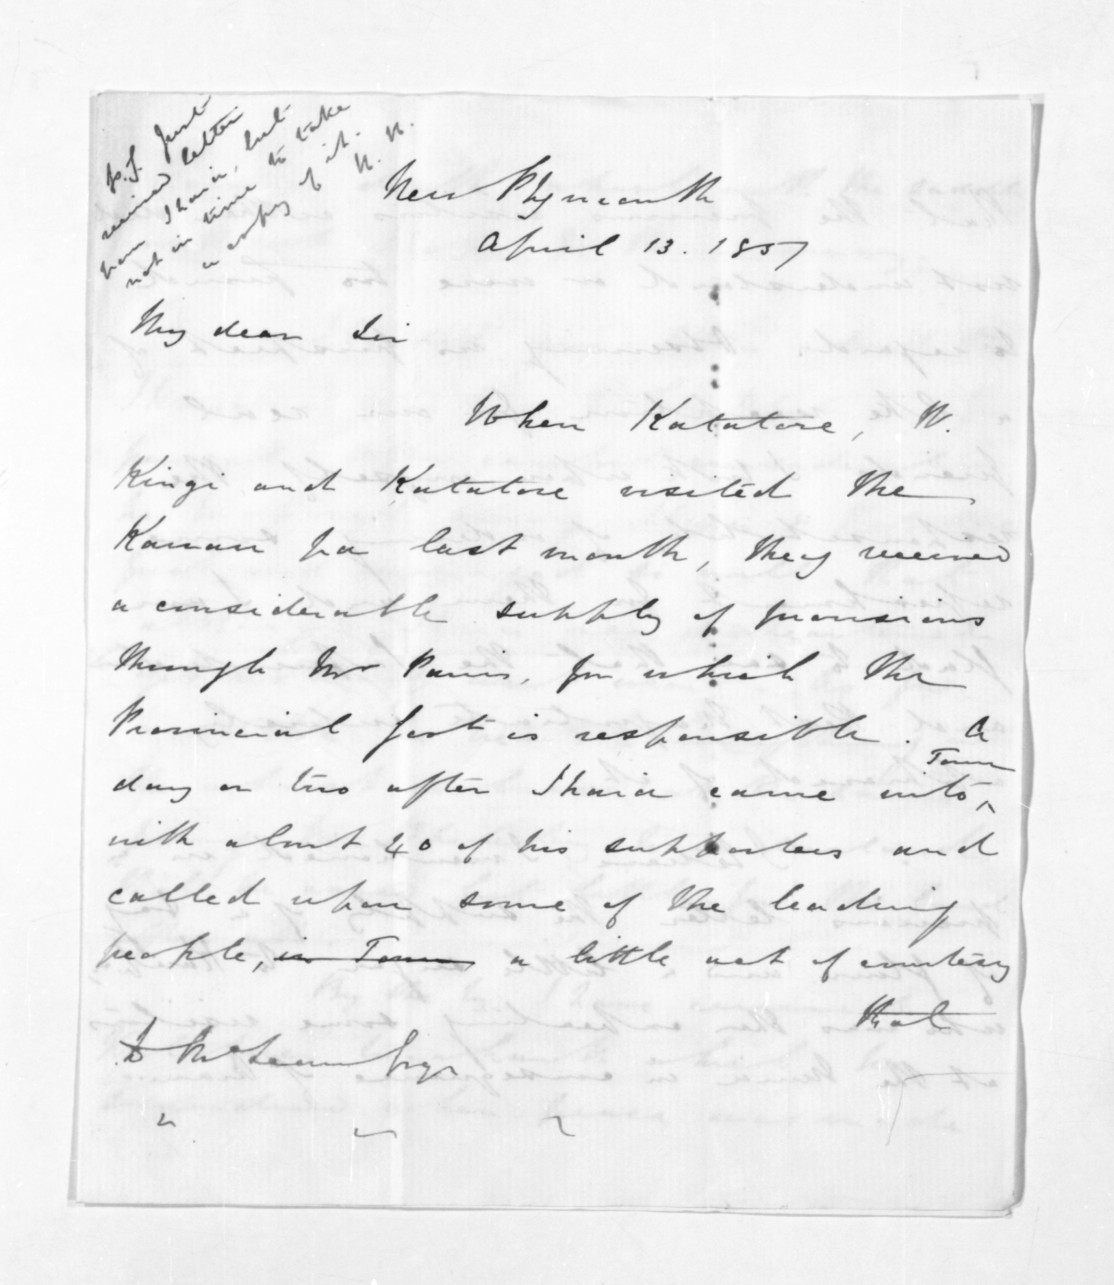 p.s. Just
received letter
from Ihaia, but
not in time to take
a copy of it.
H. H.
New Plymouth
April 13. 1857
My dear Sir
When Katatore, W.
Kingi and Katatore visited the
Kawau pa last month, they received
a considerable supply of provisions
through Mr Parris, for which the
Provincial Govt is responsible. A
day or two after Ihaia came into Town
with about 40 of his supporters and
called upon some of the leading
people, in Town a little act of courtesy
that
D McLean Esqr